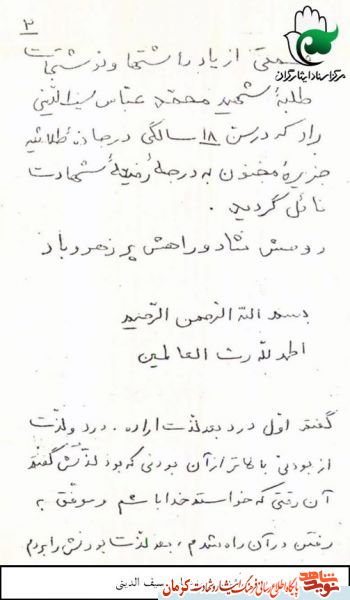 ۲
مرکز اسناد ایثارگران
قسمتی از یادداشتها و نوشتجات
طلبهٔ شهید محمد عباس سیف الدینی
را که در سن ۱۸ سالگی در جاده طلائیه
جزیرهٔ مجنون به درجهٔ رفیعهٔ شهادت
نائل گردید .
روحش شاد و راهش پر رهرو باد
بسم الله الرحمن الرحیم
الحمد لله رب العالمین
گفتم اول درد بعد لذت اراده . درد و لذت
از بودنی بالاتر از آن بودنی که بود لذتش گفتم
آن وقتی که خواسته خدا باشم و موفق به
رفتن در آن راه شدم ، بعد لذت بودنش را بردم
سیف الدینی
نوید شاهد
پایگاه اطلاع رسانی فرهنگ ایثار و شهادت کرمان